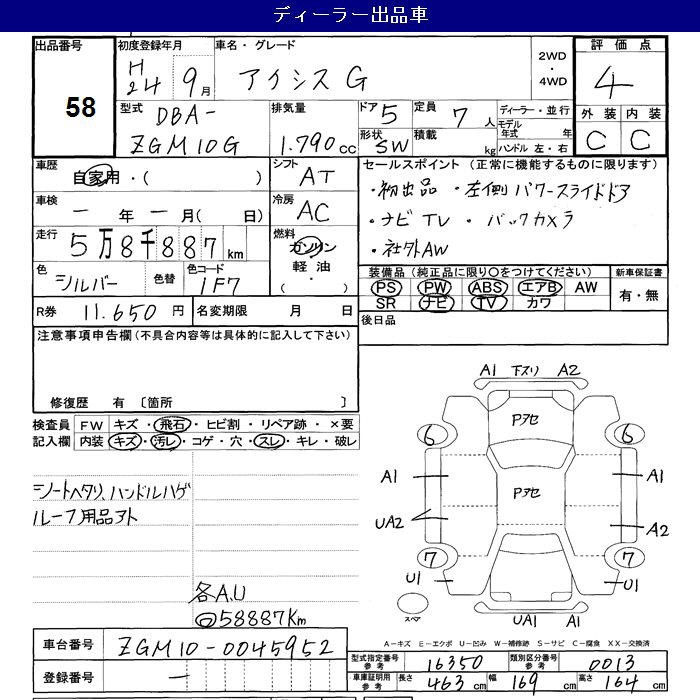 ディーラー出品車
出品番号 初度登録年月 車名・グレード 2WD・4WD 評価点
58
H24 9月 アイシス G 4
型式 排気量 ドア 5 定員 7人 ディーラー・並行
モデル年式 年
外装 内装
DBA-
ZGM10G 1.790cc 形状 SW 積載 kg ハンドル 左・右 C C
車歴 自家用・( ) シフト AT セールスポイント (正常に機能するものに限ります)
車検 ー年ー月( 日) 冷房 AC ・初出品 ・左側パワースライドドア
・ナビTV ・バックカメラ
走行 5万8千887km 燃料 ガソリン・軽油・( ) ・社外AW
色 シルバー 色替 色コード 1F7 装備品(純正品に限り○をつけてください) 新車保証書
PS PW ABS エアB AW 有・無
SR ナビ TV カワ
R券 11.650円 名変期限 月 日 後日品
注意事項申告欄(不具合内容等は具体的に記入して下さい)
修復歴 有〔箇所 〕
検査員記入欄 FW キズ・飛石・ヒビ割・リペア跡・×要
内装 キズ・汚レ・コゲ・穴・スレ・キレ・破レ
シートヘタリ、ハンドルハゲ
ルーフ用品アト
各A,U
58887Km
A1 下スリ A2
Pアセ
6 6
A1 A1
Pアセ
UA2 A2
7 7
U1 U1
スペア UA1 A1
A-キズ E-エクボ U-凹み W-補修跡 S-サビ C-腐食 XX-交換済
車台番号 ZGM10-0045952
型式指定番号参考 16350 類別区分番号参考 0013
登録番号 ー
車庫証明用参考 長さ 463cm 幅 169cm 高さ 164cm